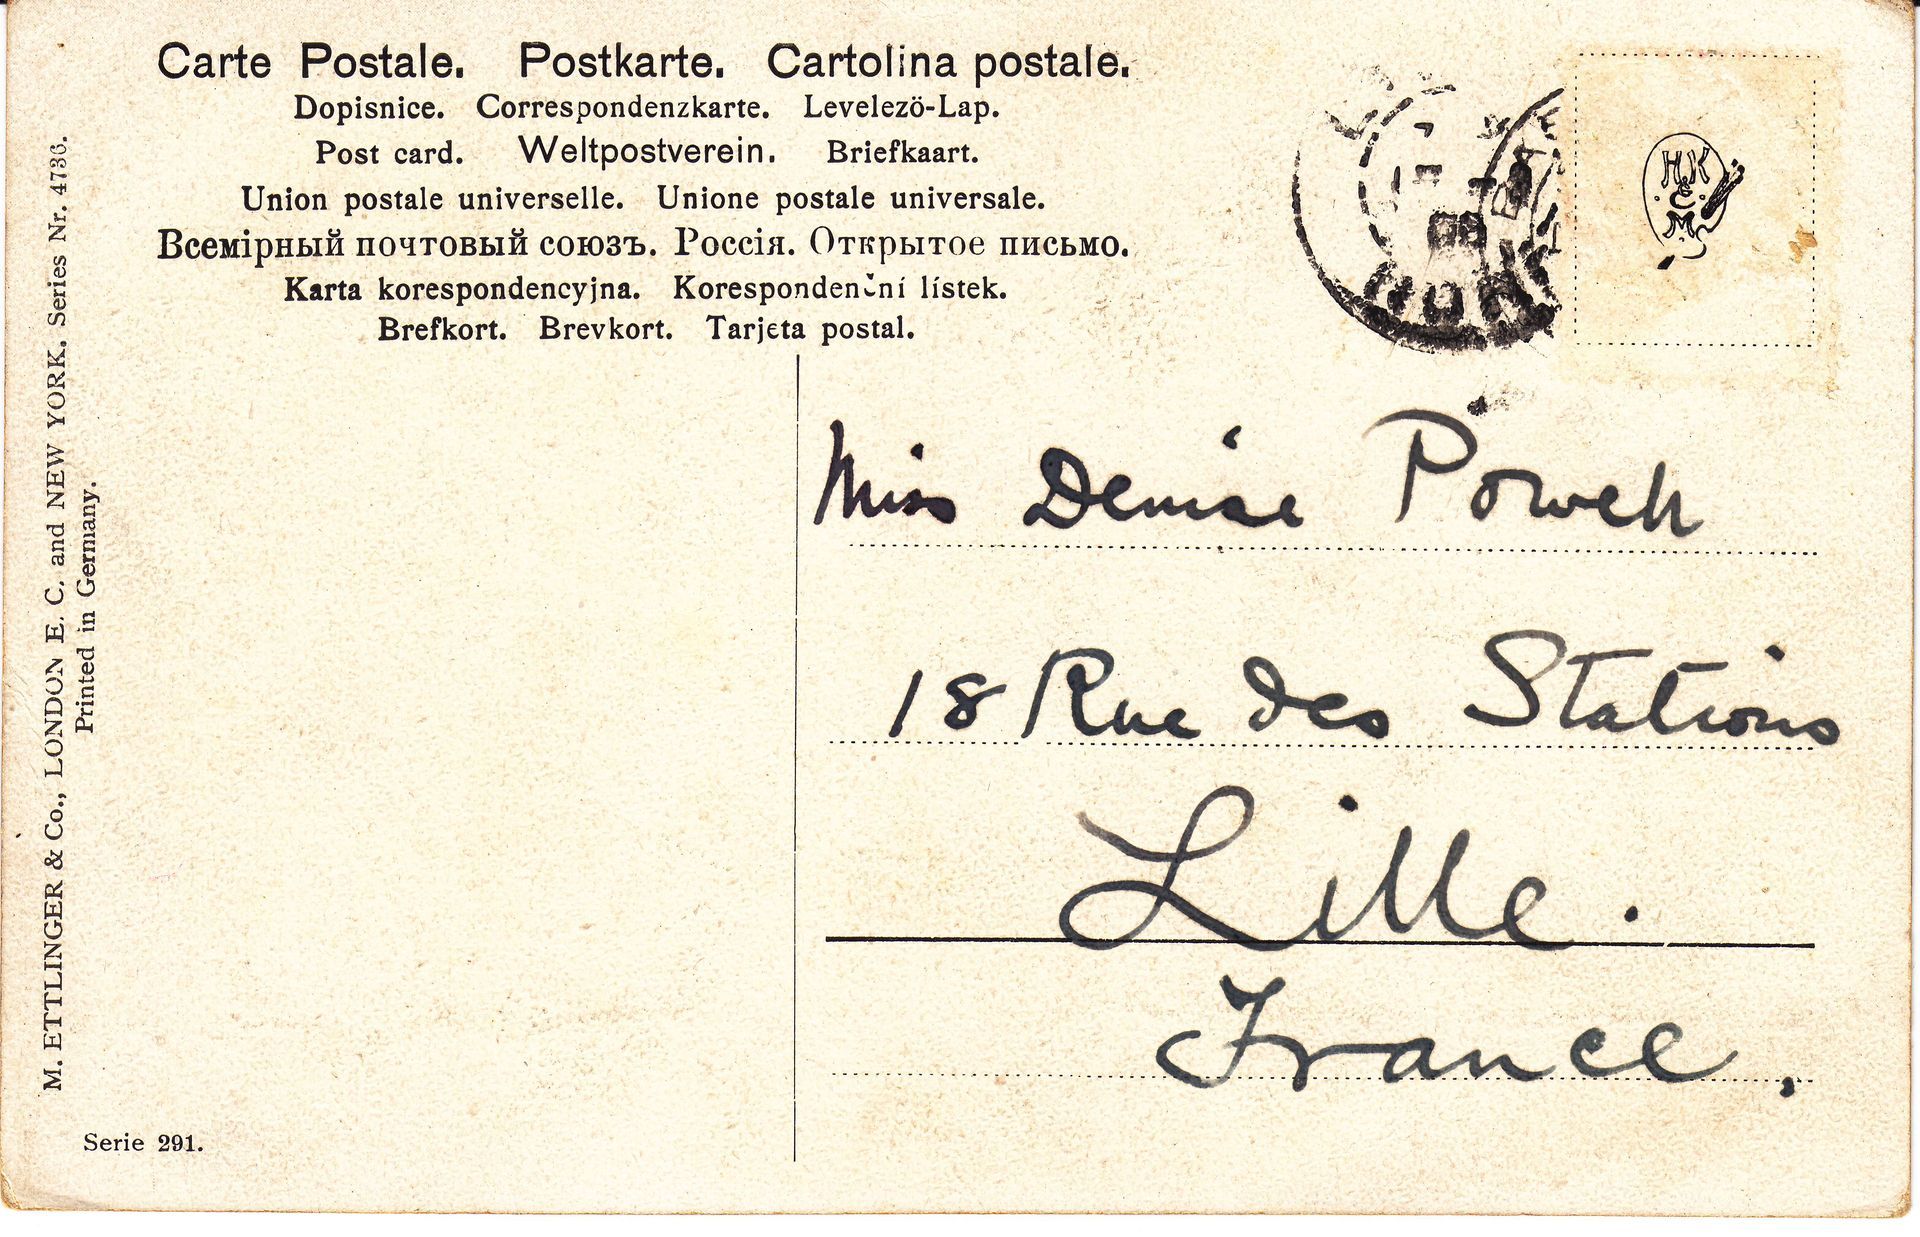 Carte Postale. Postkarte. Cartolina postale.
Dopisnice. Correspondenzkarte. Levelezö-Lap.
Post card. Weltpostverein. Briefkaart.
Union postale universelle. Unione postale universale.
Всемірный почтовый союзъ. Россія. Открытое письмо.
Karta korespondencyjna. Korespondenční lístek.
Brefkort. Brevkort. Tarjeta postal.
M. ETTLINGER & Co., LONDON E. C. and NEW YORK. Series Nr. 4736.
Printed in Germany.
Serie 291.
HK
&
M.
Miss Denise Powell
18 Rue des Stations
Lille.
France.